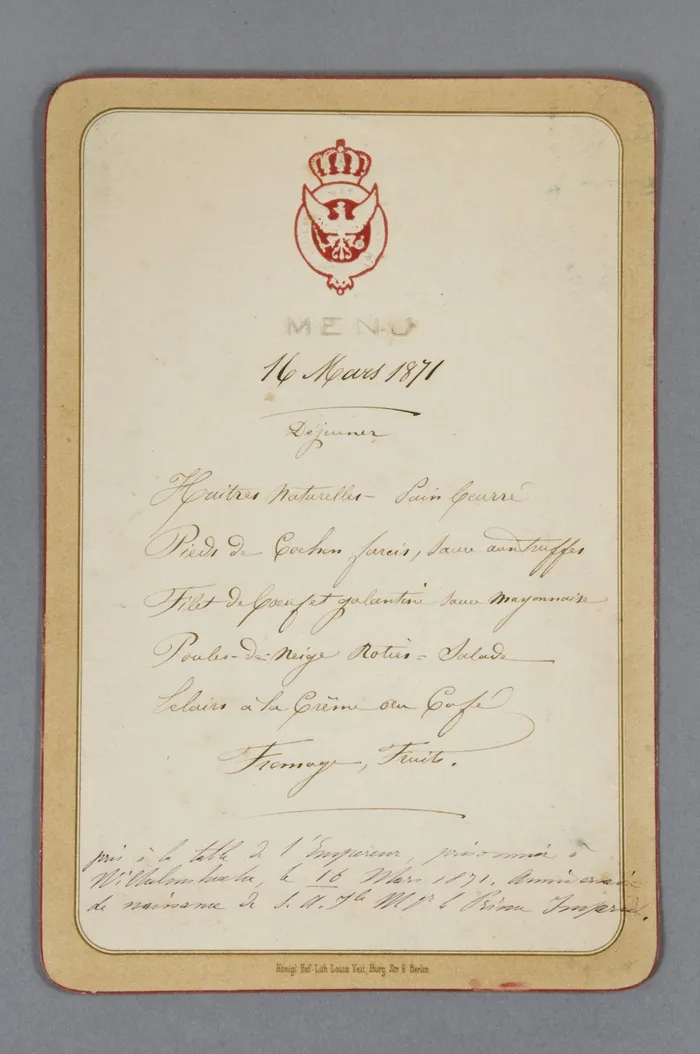 MENU
16 Mars 1871
Dejeuner
Huitres Naturelles - Pain beurré
Pieds de Cochon farcis, sauce aux truffes
Filet de boeuf et galantine sauce Mayonnaise
Poules-de-Neige Roties - Salade
Eclairs à la Crême au Café
Fromage, Fruits.
pris à la table de l'Empereur, prisonnier à
Wilhelmshoehe, le 16 Mars 1871. Anniversaire
de naissance de S. A. Ile Mgr le Prince Impérial.
Königl. Hof-Lith. Louis Veit, Burg Str. 6 Berlin.